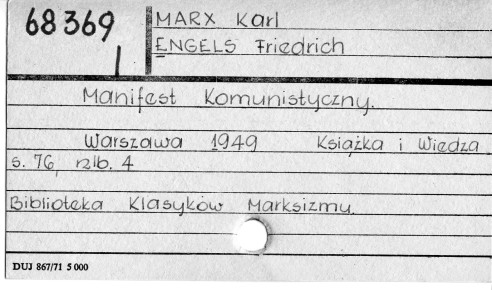 68369
I
MARX Karl
ENGELS Friedrich
Manifest Komunistyczny.
Warszawa 1949 Książka i Wiedza
s. 76, nlb. 4
Biblioteka Klasyków Marksizmu.
DUJ 867/71 5 000